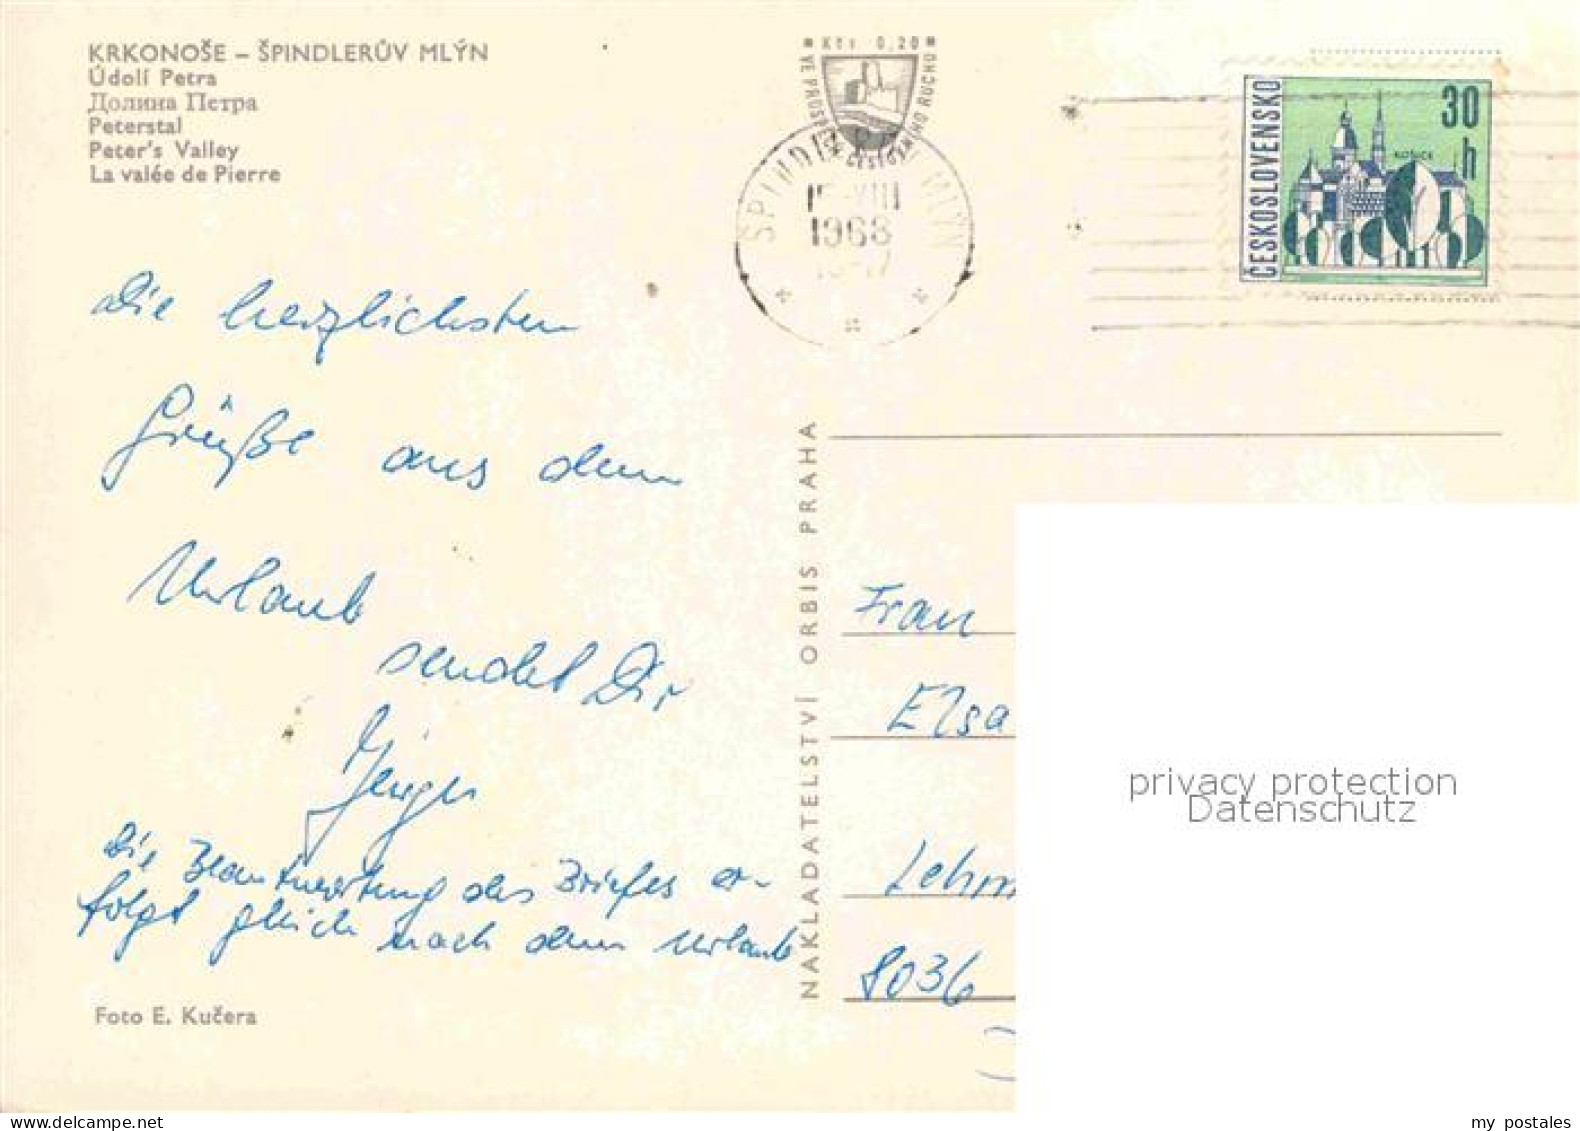 KRKONOŠE – ŠPINDLERŮV MLÝN
Údolí Petra
Долина Петра
Peterstal
Peter's Valley
La valée de Pierre
Kčs 0,20
VE PROSPĚCH CESTOVNÍHO RUCHU
MLÝN
VIII
1968
ČESKOSLOVENSKO
30
h
KOŠICE
die herzlichsten
Grüße aus dem
Urlaub
sendet Dir
die Beantwortung des Briefes er-
folgt gleich nach dem Urlaub
Foto E. Kučera
NAKLADATELSTVÍ ORBIS PRAHA
Frau
Elsa
Lehm
8036
privacy protection
Datenschutz
my postales